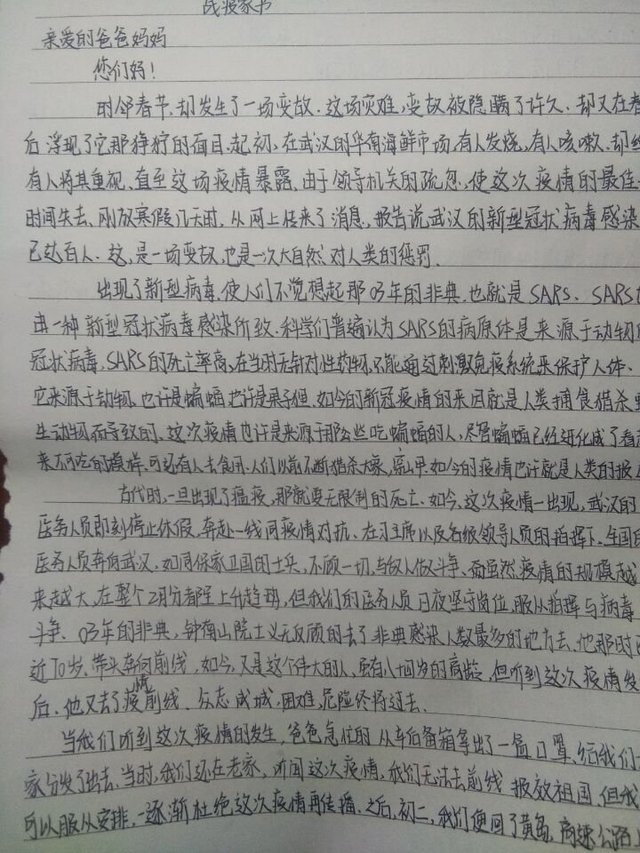 战疫家书
亲爱的爸爸妈妈
您们好！
时邻春节，却发生了一场变故．这场灾难，变故被隐瞒了许久．却又在春
后浮现了它那狰狞的面目．起初，在武汉的华南海鲜市场，有人发烧，有人咳嗽．却
有人将其重视．直至这场疫情暴露．由于领导机关的疏忽，使这次疫情的最佳
时间失去．刚放寒假几天时．从网上传来了消息，报告说武汉的新型冠状病毒感染
已达百人．这，是一场变故，也是一次大自然对人类的惩罚．
出现了新型病毒，使人们不觉想起那03年的非典．也就是SARS、SARS
由一种新型冠状病毒感染所致．科学们普遍认为SARS的病原体是来源于动物
冠状病毒，SARS的死亡率高，在当时无针对性药物，不能通过刺激免疫系统来保护人体、
它来源于动物．也许是蝙蝠也许是果子狸．如今的新冠疫情的来因就是人类捕食猎杀
生动物而导致的．这次疫情也许是来源于那么些吃蝙蝠的人，尽管蝙蝠已经进化成了看
来不可吃的模样，可还有人去食用．人们以前不断猎杀大象，犀牛．如今的疫情也许就是人类的报
古代时，一旦出现了瘟疫，那就要无限制的死亡．如今，这次疫情一出现，武汉的
医务人员即刻停止休假，奔赴一线同疫情对抗．在习主席以及各级领导人员的指挥下．全国
医务人员奔向武汉，如同保家卫国的士兵，不顾一切，与敌人做斗争．而虽然疫情的规模越
来越大，在整个2月分都呈上升趋势，但我们的医务人员日夜坚守岗位，服从指挥与病毒
斗争．03年的非典，钟南山院士义无反顾的去了非典感染人数最多的地方去．他那时
近70岁．带头奔向前线．如今，又是这个伟大的人，虽有八十四岁的高龄，但听到这次疫情发
后．他又去了疫情前线．众志成城，困难，危险终将过去．
当我们听到这次疫情的发生，爸爸急忙的从车后备箱拿出了一盒口罩，给我们
家分发了出去．当时，我们还在老家，听闻这次疫情，我们无法去前线报效祖国，但我
可以服从安排，逐渐杜绝这次疫情再传播．之后，初二，我们便回了黄岛，高速公路